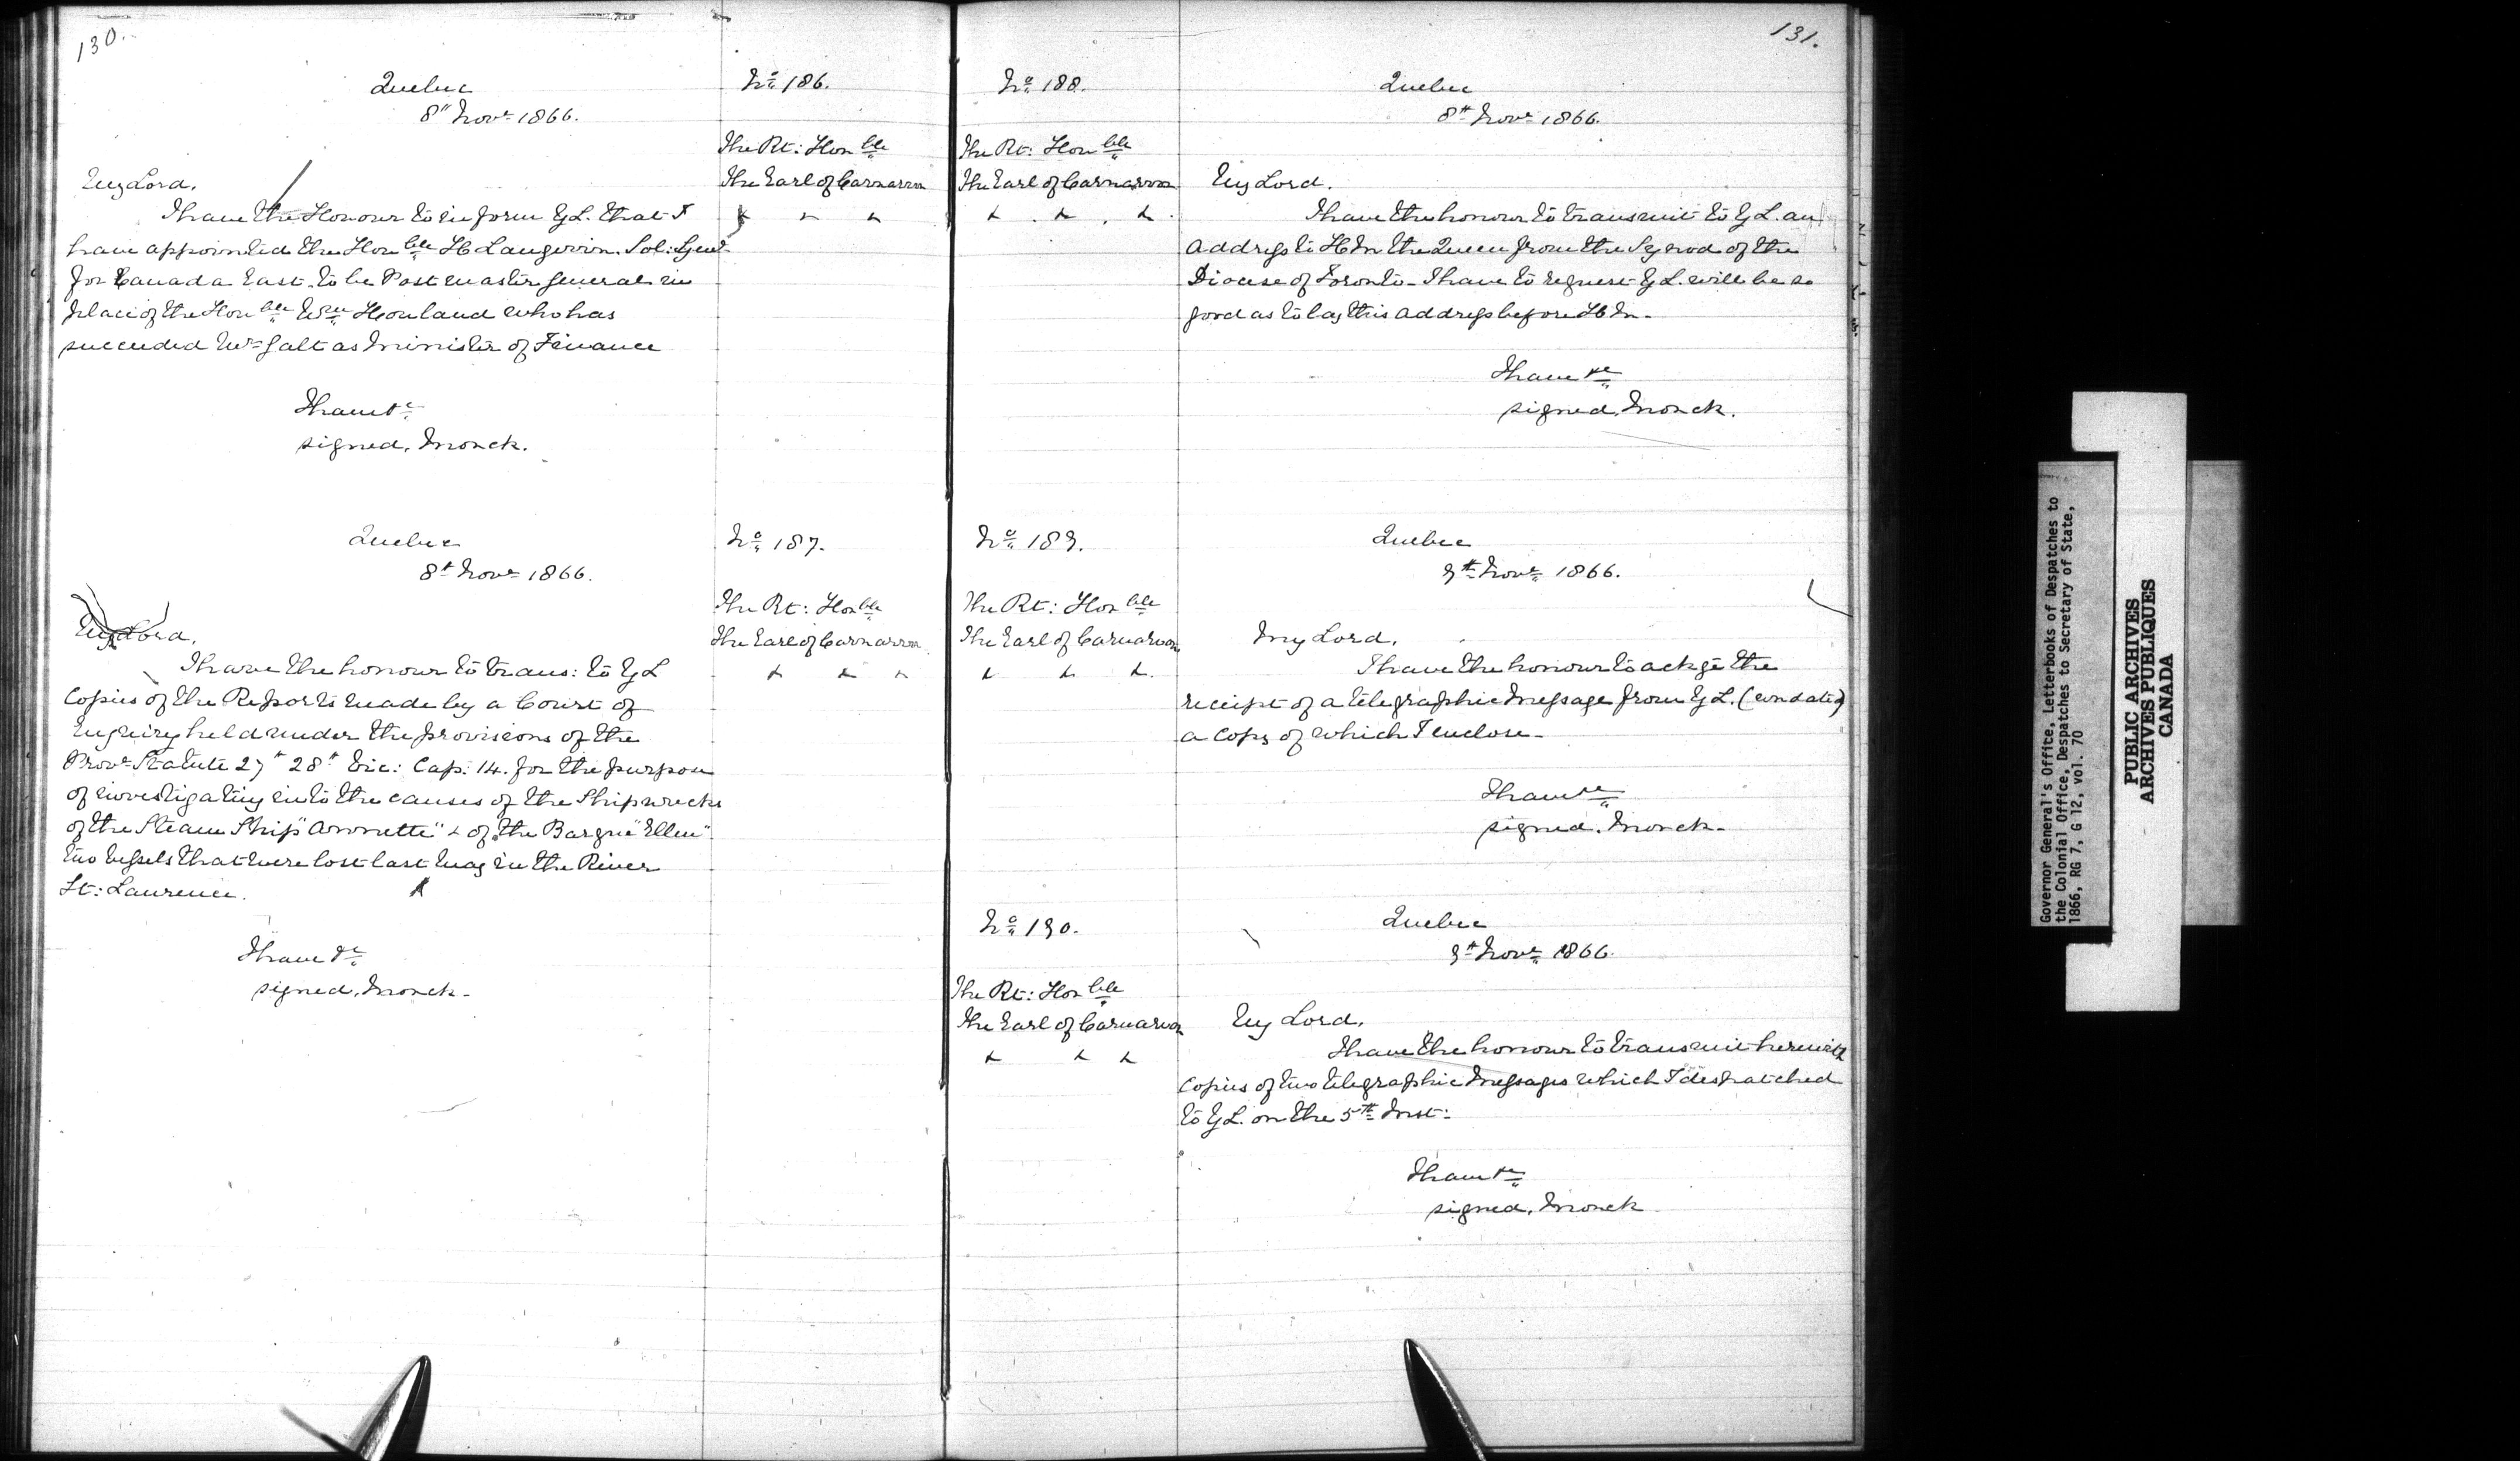 130.
Quebec
8" Novr 1866.
No 186.
The Rt: Honble
The Earl of Carnarvon
x x x
My Lord.
I have the Honour to inform Y L. that I
have appointed the Honble H Langevin. Sol: Genl
for Canada East. to be Postmaster General in
place of the Honble Wm Howland who has
succeeded Mr Galt as Minister of Finance
I have &c
signed. Monck.
Quebec
8th Novr 1866.
No 187.
The Rt: Honble
The Earl of Carnarvon
x x x
My Lord.
I have the honour to trans: to Y L
Copies of the Reports made by a Court of
Enquiry held under the provisions of the
Provl Statute 27" 28" Vic: Cap. 14. for the purpose
of investigating into the causes of the Shipwrecks
of the Steam Ship "Annette" & of "the Barque "Ellen"
two vessels that were lost last May in the River
St: Laurence.
I have &c
signed. Monck.
131.
No 188.
Quebec
8th Novr 1866.
The Rt: Honble
The Earl of Carnarvon
x x x
My Lord.
I have the honour to transmit to Y L. an
address to H M the Queen from the Synod of the
Diocese of Toronto - I have to request Y L. will be so
good as to lay this address before H M.
I have &c
signed. Monck.
No 189.
Quebec
9th Novr 1866.
The Rt: Honble
The Earl of Carnarvon
x x x.
My Lord.
I have the honour to ackge the
receipt of a telegraphic message from Y L. (undated)
a copy of which I enclose -
I have &c
signed. Monck -
No 190.
Quebec
9th Novr 1866.
The Rt: Honble
The Earl of Carnarvon
x x x
My Lord.
I have the honour to transmit herewith
Copies of two telegraphic messages which I despatched
to Y L. on the 5th Inst:
I have &c
signed. Monck
Governor General's Office, Letterbooks of Despatches to
the Colonial Office, Despatches to Secretary of State,
1866, RG 7, G 12, vol. 70
PUBLIC ARCHIVES
ARCHIVES PUBLIQUES
CANADA